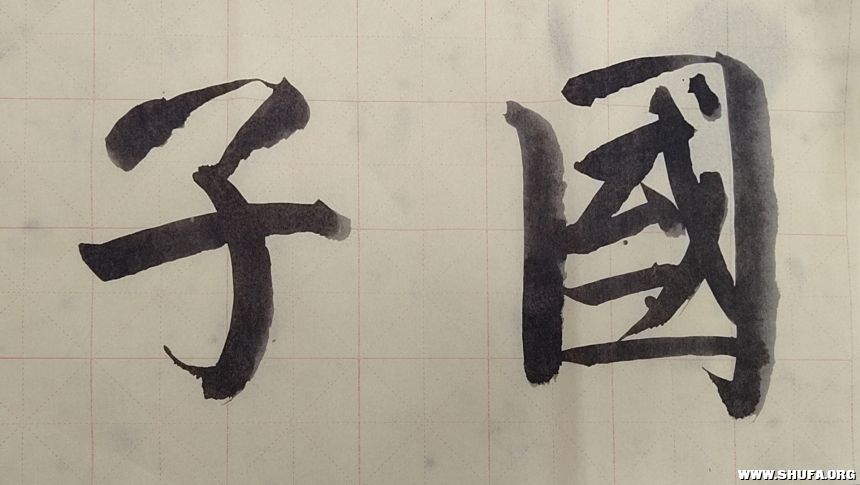 國子
WWW.SHUFA.ORG